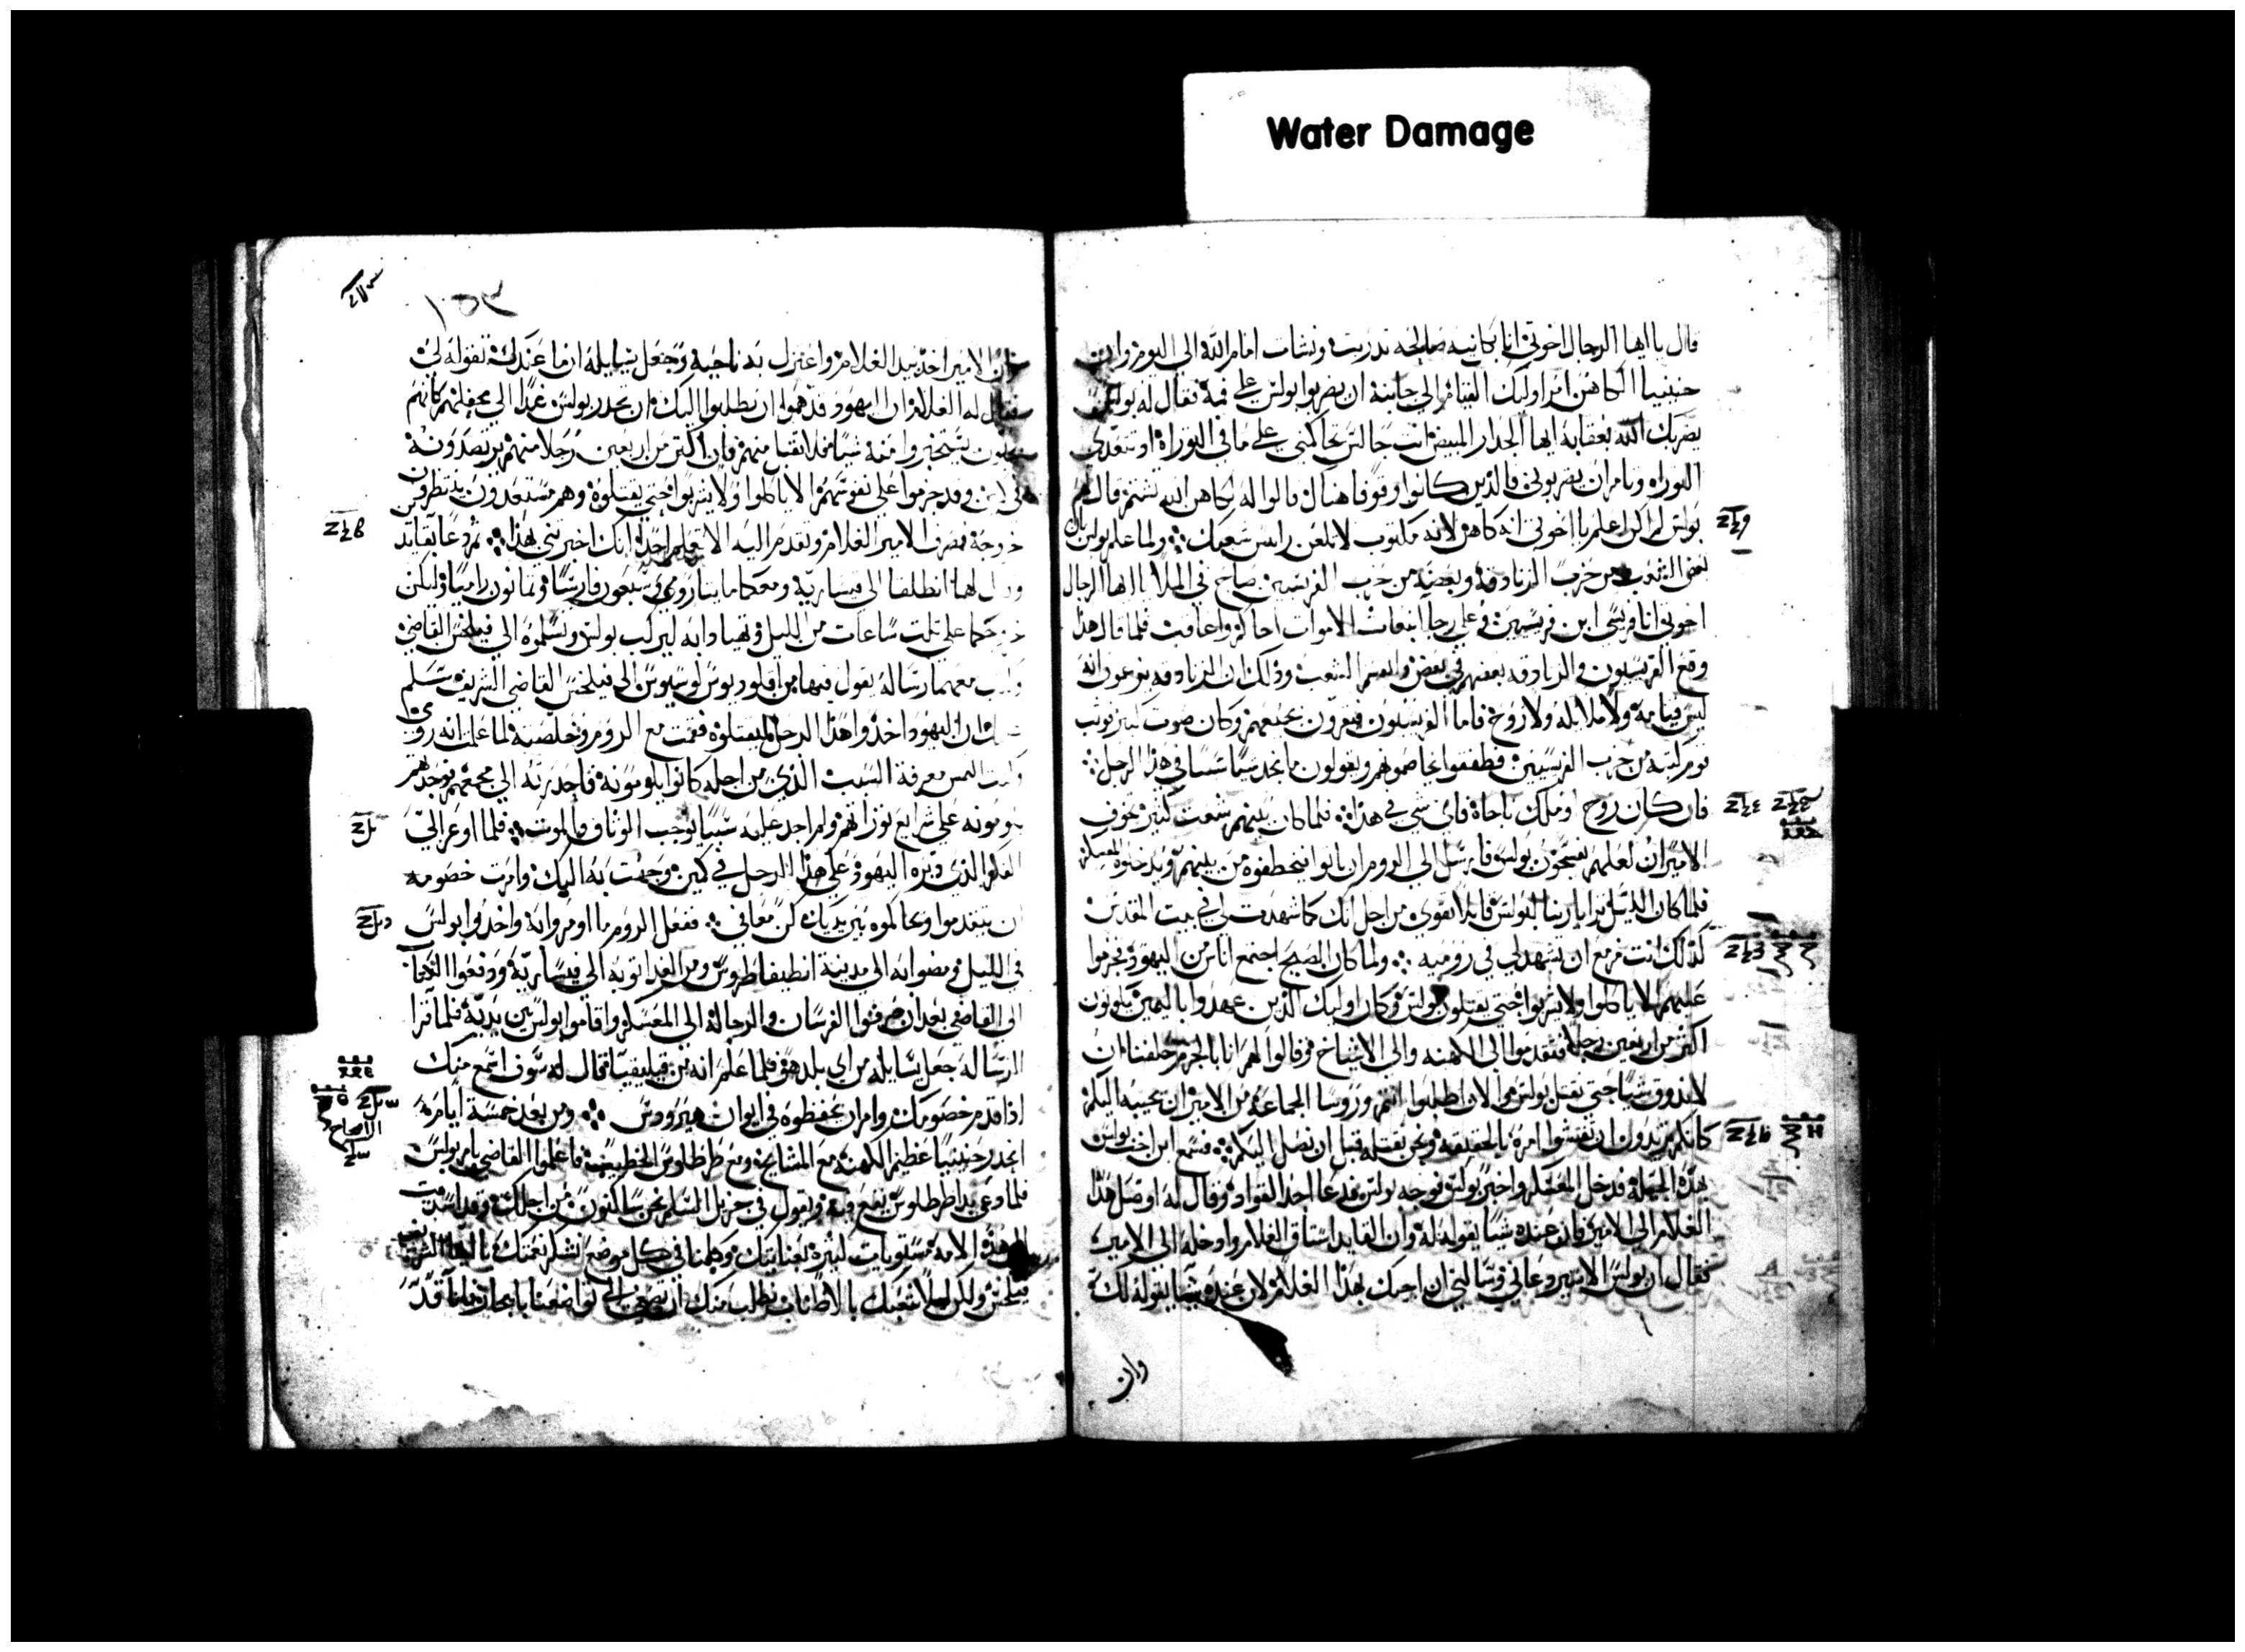 Water Damage
قال يا ايها الرجال اخوتي انا بكل نيه صالحه تدربت ونشات امام الله الى اليوم وان
حننيا الكاهن امر اوليك القيام الى جانبه ان يضربوا بولس على فيه فقال له بولس
يضربك الله بعقابه ايها الجدار المبيض انت جالس تحاكمني على ما في التوراة او تتعدى
التوراه وتامر ان يضربوني فالذين كانوا وقوفا هناك قالوا له لكاهن الله تشتم قال لهم
بولس لم اكن اعلم يا اخوتي انه كاهن لانه مكتوب لا تلعن رايس شعبك ولما علم بولس بان
بعض الشعب من حزب الزنادقه وبعضه من حزب الفريسين صاح في الملا يا ايها الرجال
اخوتي انا فريسي ابن فريسين وعلى رجا انبعاث الاموات احاكم واعاقب فلما قال هذا
وقع الفريسيون والزنادقه بعضهم في بعض وانقسم الشعب وذلك ان الزنادقه يزعمون انه
ليس قيامة ولا ملايكه ولا روح فاما الفريسيون فيقرون بجميعهم وكان صوت كبير فوثب
قوم كتبه من حزب الفريسيين فطفقوا يخاصمونهم ويقولون ما نجد شيا سيا في هذا الرجل
فان كان روح او ملاك ناجاه فاي شي في هذا فلما كان بينهم شعب كبير تخوف
الامير ان لعلهم يفسخون بولس فارسل الى الروم ان ياتوا فيخطفوه من بينهم ويدخلوه المعسكر
فلما كان الليل ترايا ربنا لبولس قايلا تقوى من اجل انك كما شهدت لي في بيت المقدس
كذلك انت مزمع ان تشهد لي في روميه ولما كان الصبح اجتمع اناس من اليهود فحرموا
عليهم الا ياكلوا ولا يشربوا حتى يقتلون بولس وكان اوليك الذين عهدوا باليمين يكونون
اكثر من اربعين رجلا فتقدموا الى الكهنه والى الاشياخ وقالوا لهم انا بالجرم حلفنا ان
لا نذوق شيا حتى نقتل بولس والان اطلبوا انتم وروسا الجماعه من الامير ان يجيبه اليكم
كانكم تريدون ان تفتشوا امره بالحقيقه ونحن نقتله قبل ان يصل اليكم فسمع ابن اخت بولس
بهذه الحيله فدخل المعسكر واخبر بولس فوجه بولس فدعا احد القواد وقال له اوصل هذا
الغلام الى الامير فان عنده شيا يقوله له وان القايد استاق الغلام وادخله الى الامير
فقال ان بولس الاسير دعاني وسالني ان اجيك بهذا الغلام لان عنده شيا يقوله لك
وان
١٥٣
وان الامير اخذ بيد الغلام واعتزل به ناحية وجعل يسايله ان ما عندك تقوله لي
فقال له الغلام ان اليهود قد هموا ان يطلبوا اليك ان تحدر بولس غدا الى محفلهم كانهم
يستخبروا منه شيا فلا تقبل منهم فان اكثر من اربعين رجلا منهم يرتصدونه
في كمين وقد حرموا على نفوسهم الا ياكلوا ولا يشربوا حتى يقتلوه وهم مستعدون ينتظرون
خروجه فصرف الامير الغلام وتقدم اليه الا يعلم احدا انك اخبرتني بهذا ثم دعا بقايدين
وقال لهما انطلقا الى قيساريه ومعكما مايتا رومي وسبعون فارسا وثمانون راميا وليكن
خروجكما على ثلث ساعات من الليل وتهيا دابه ليركب بولس وتسلموه الى فيلخس القاضي
وكتب معهما رسالة يقول فيها من اقلوديوس لوسيوس الى فيلخس القاضي الشريف سلام
ان اليهود اخذوا هذا الرجل ليقتلوه فقمت مع الروم وخلصته لما علمت انه رومي
وكنت التمس معرفة السبب الذي من اجله كانوا يلومونه فاحدرته الى مجمعهم فوجدتهم
يلومونه على شرايع توراتهم ولم اجد عليه شيا يوجب الوثاق والموت فلما اوعز الي
المكر الذي دبره اليهود على هذا الرجل في كمين وجهت به اليك وامرت خصومه
ان يتقدموا ويحاكموه بين يديك كن معافى ففعل الروم ما اومروا به واخذوا بولس
في الليل ومضوا به الى مدينة انطيفاطروس ومن الغد اتوا به الى قيساريه ودفعوا الكتاب
الى القاضي بعد ان صرفوا الفرسان والرجالة الى المعسكر واقاموا بولس بين يديه فلما قرا
الرسالة جعل يسايله من اي بلد هو فلما علم انه من قيليقيا قال له سوف اسمع منك
اذا قدم خصومك وامر ان يحفظوه في ايوان هيرودس ومن بعد خمسة ايام
انحدر حننيا عظيم الكهنة مع المشايخ ومع طرطلوس الخطيب فاعلموا القاضي بامر بولس
فلما دعي بدا طرطلوس يقع فيه ويقول في جزيل السلم نحن ساكنون من اجلك وقد اسديت
الى هذه الامه مستويات كثيره بعنايتك وكلنا في كل موضع نشكر نعمتك يا ايها الشريف
فيلخس ولكن ليلا نتعبك بالاطناب نطلب منك ان تصغي الى تواضعنا بايجاز
الاصحاح